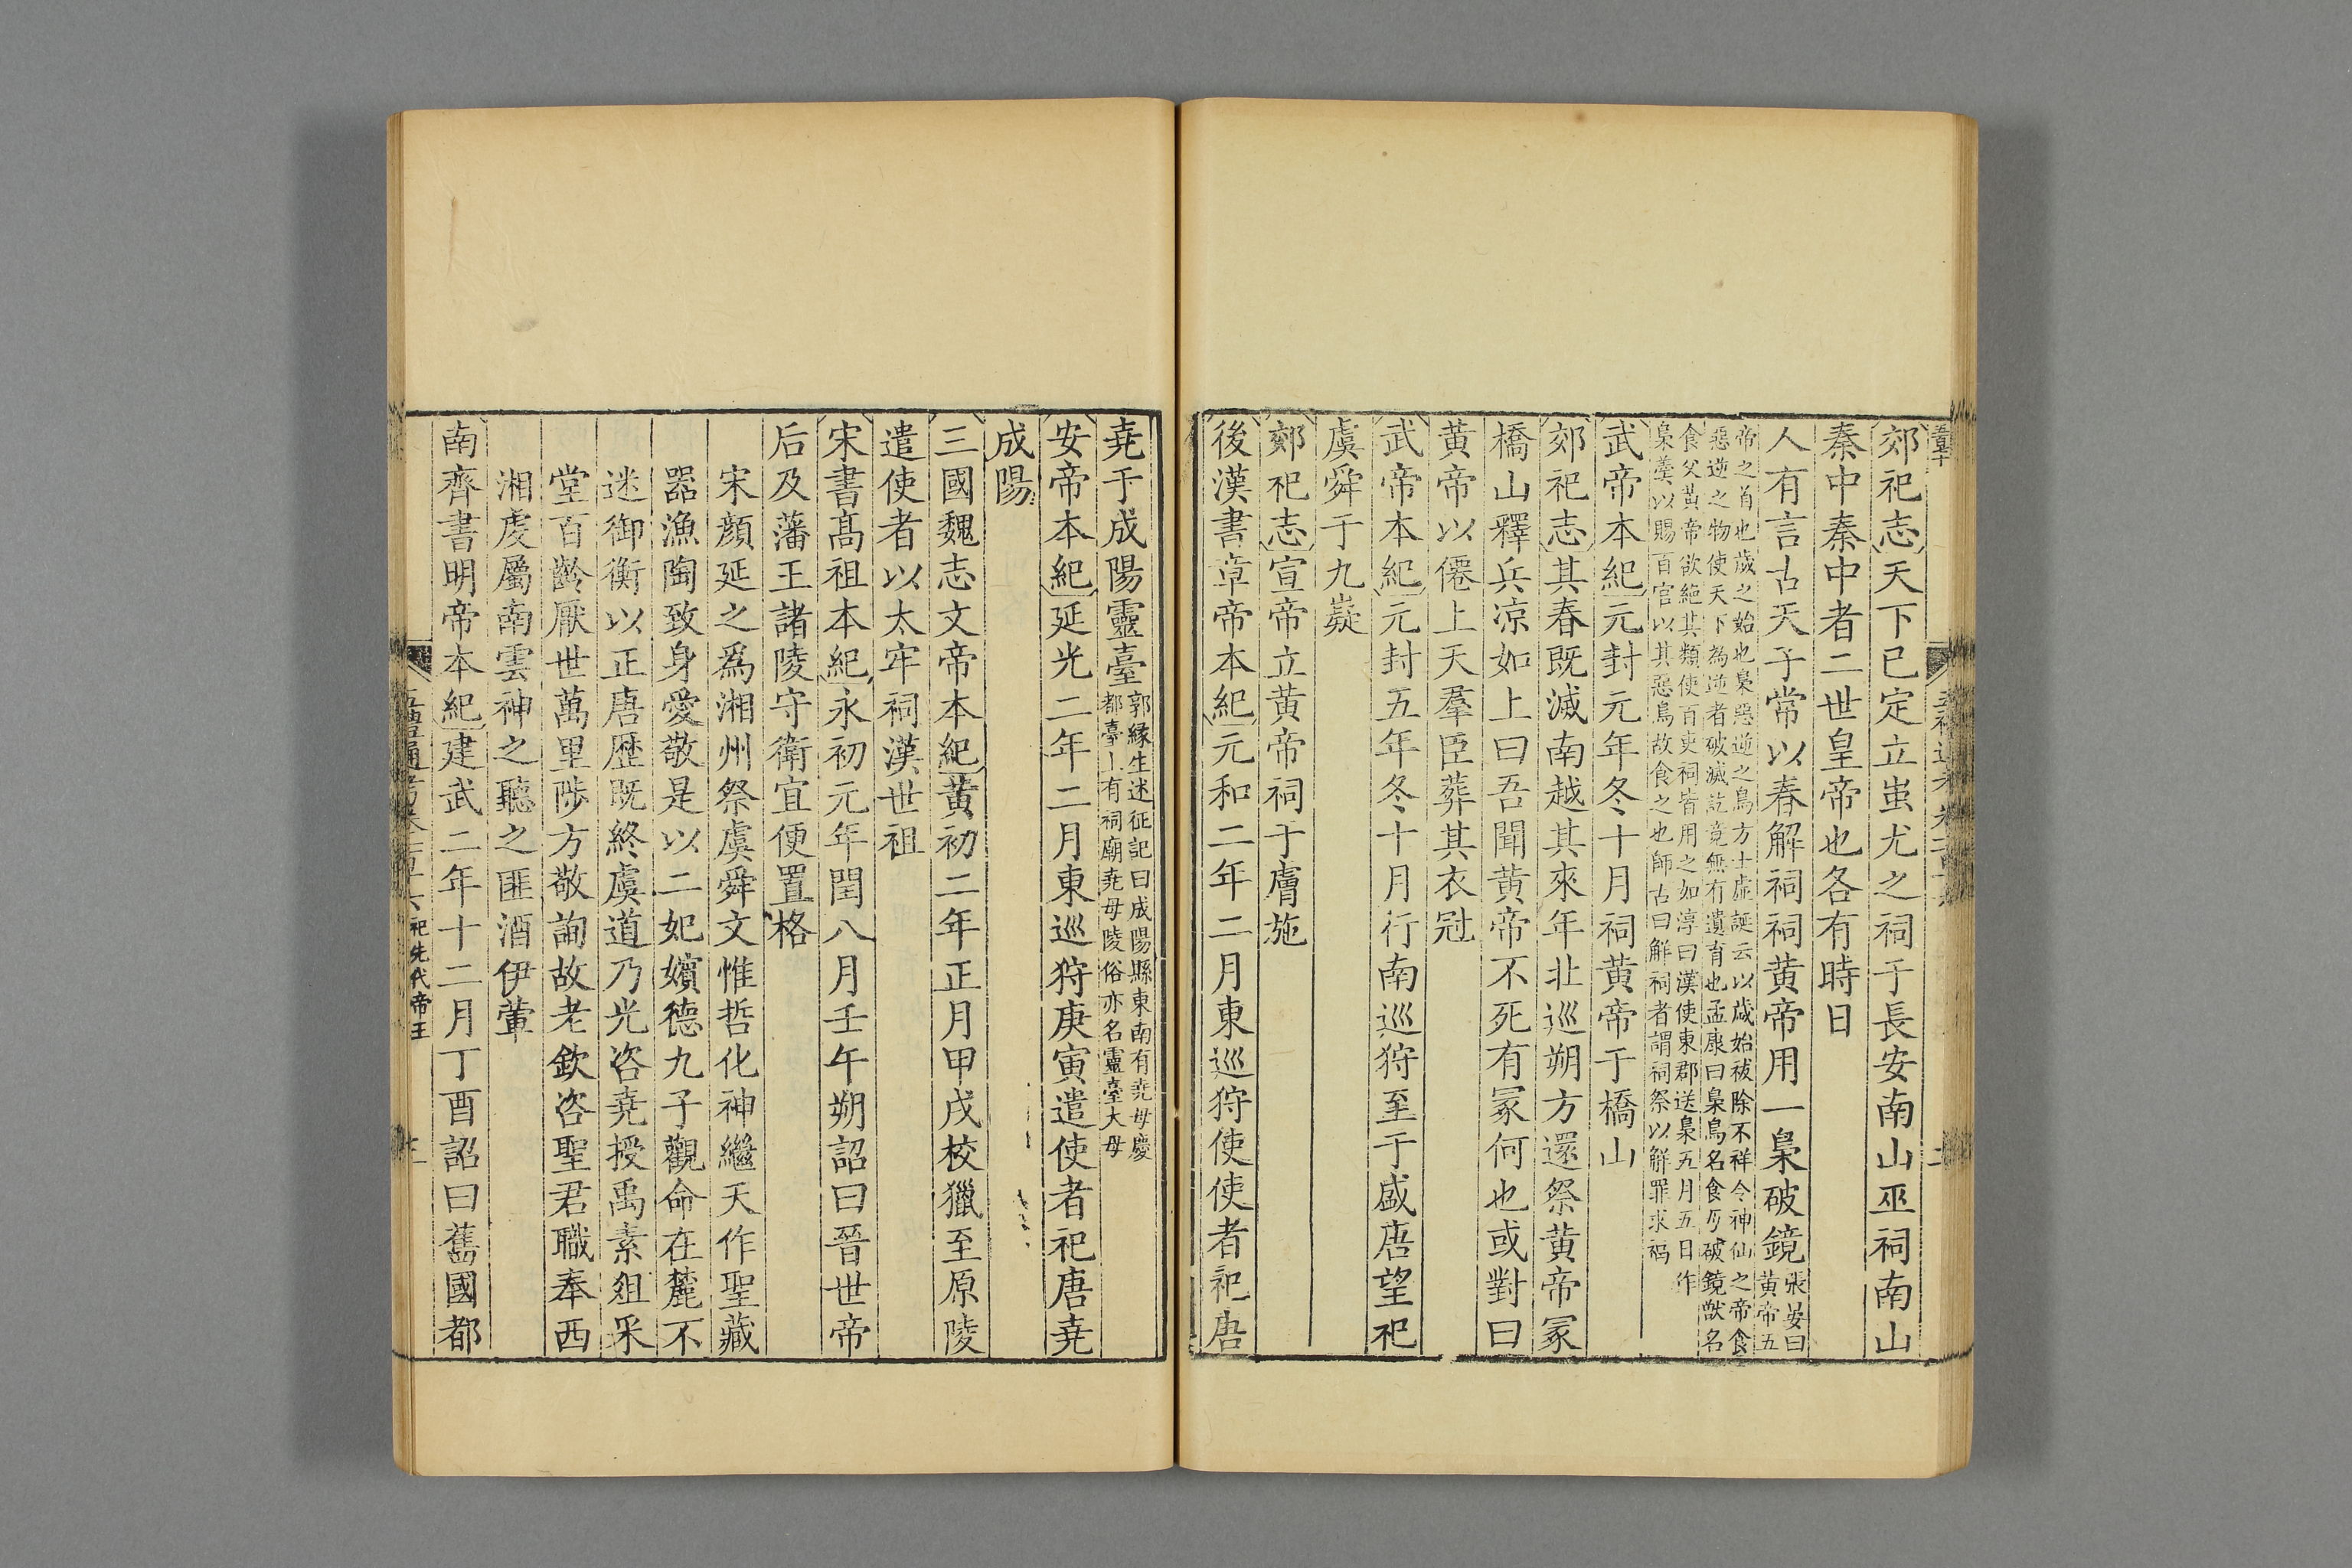 郊祀志天下已定立蚩尤之祠于長安南山巫祠南山
秦中秦中者二世皇帝也各有時日
人有言古天子常以春解祠祠黃帝用一梟破鏡張晏曰黃帝五
帝之首也歲之始也梟惡逆之鳥方士虛誕云以歲始祓除不祥令神仙之帝食
惡逆之物使天下為逆者破滅訖竟無有遺育也孟康曰梟鳥名食母破鏡獸名
食父黃帝欲絕其類使百吏祠皆用之如淳曰漢使東郡送梟五月五日作
梟羹以賜百官以其惡鳥故食之也師古曰解祠者謂祠祭以解罪求福
武帝本紀元封元年冬十月祠黃帝于橋山
郊祀志其春既滅南越其來年北巡朔方還祭黃帝冢
橋山釋兵涼如上曰吾聞黃帝不死有冢何也或對曰
黃帝以僊上天羣臣葬其衣冠
武帝本紀元封五年冬十月行南巡狩至于盛唐望祀
虞舜于九嶷
郊祀志宣帝立黃帝祠于膚施
後漢書章帝本紀元和二年二月東巡狩使使者祀唐
堯于成陽靈臺郭緣生述征記曰成陽縣東南有堯母慶都臺上有祠廟堯母陵俗亦名靈臺大母
安帝本紀延光二年二月東巡狩庚寅遣使者祀唐堯
成陽
三國魏志文帝本紀黃初二年正月甲戌校獵至原陵
遣使者以太牢祠漢世祖
宋書高祖本紀永初元年閏八月壬午朔詔曰晉世帝
后及藩王諸陵守衛宜便置格
宋顏延之為湘州祭虞舜文惟哲化神繼天作聖藏
器漁陶致身愛敬是以二妃嬪德九子觀命在麓不
迷御衡以正唐歷既終虞道乃光咨堯授禹素俎采
堂百齡厭世萬里陟方敬詢故老欽咨聖君職奉西
湘虔屬南雲神之聽之匪酒伊葷
南齊書明帝本紀建武二年十二月丁酉詔曰舊國都
五禮通考卷一百十六 祀先代帝王